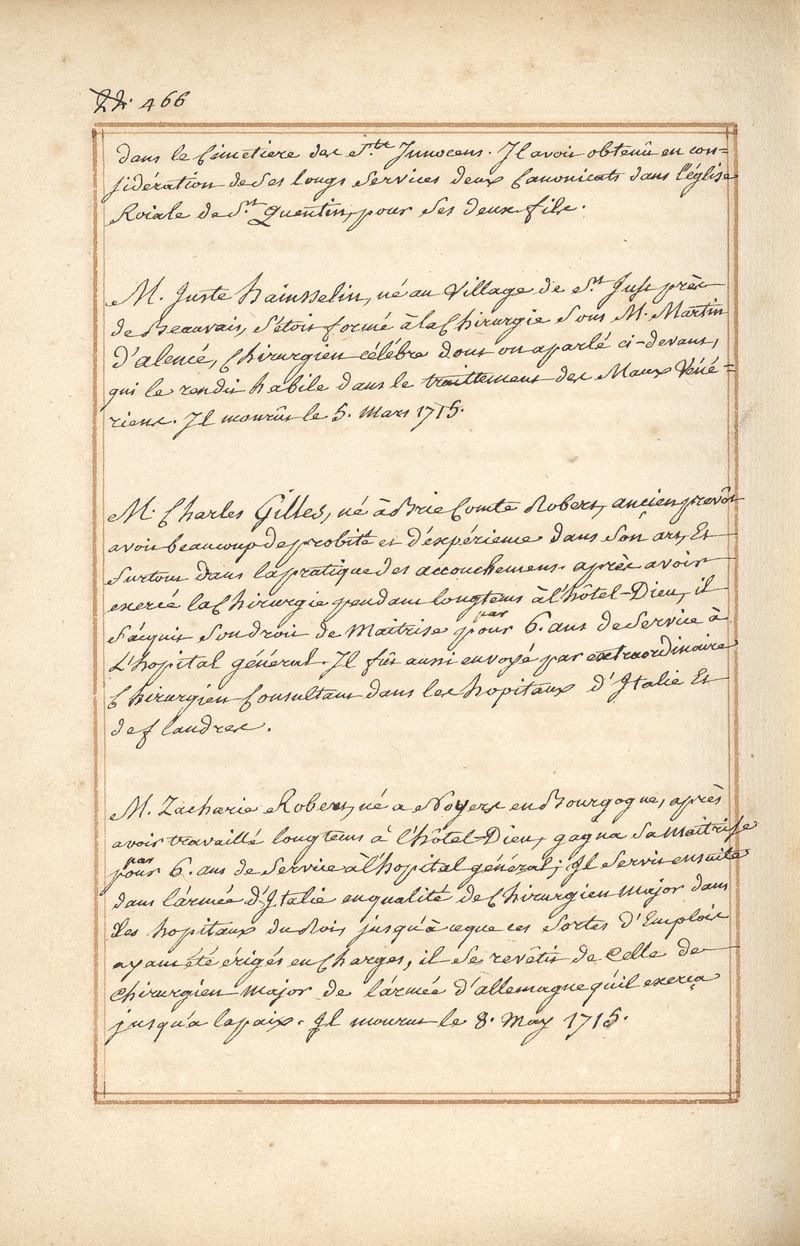 22. 466
dans le Cimetiere des Sts. Innocens. Il avoit obtenû en con=
sidération de ses longs services deux Canonicats dans l'église
Roiale de St. Quentin, pour ses deux fils.
M. Juste hainsselin, né au Village de St. Just près
de Beauvais, s'étoit formé à la Chirurgie sous M. Martin
D'alencé, Chirurgien célébre dont on a parlé ci-devant,
qui le rendit habile dans le traittement des Maux Véné=
riens. Il mourût le 5. Mars 1715.
M. Charles Gilles, né à Brie Comte Robert, ancien prevôt
avoit beaucoup de probité et d'expérience dans son art, Et
surtout dans la pratique des accouchemens. après avoir
exercé la Chirurgie pendant longtems à l'hôtel-Dieu, il
s'acquit son droit de Maitrise pour par 6. ans de Service à
L'hopital général. Il fût aussi envoyé par extraordinaire
Chirurgien Consultant dans les hopitaux d'Italie Et
de flandres.
M. Zacharie Robert, né a Noyers en Bourgogne, après
avoir travaillé longtems à l'hôtel-Dieu, gagna sa maitrise
pour par 6. ans de service à l'hopital général; Il servit ensuite
dans l'armée d'Italie en qualité de Chirurgien Major dans
les hopitaux du Roi, jusqu'à ce que ces sortes d'Emplois
ayant été érigés en Charges, il se revêtit de Celle de
Chirurgien Major de l'armée d'allemagne qu'il exerça
jusqu'a la paix. Il mourut le 8. May 1715.